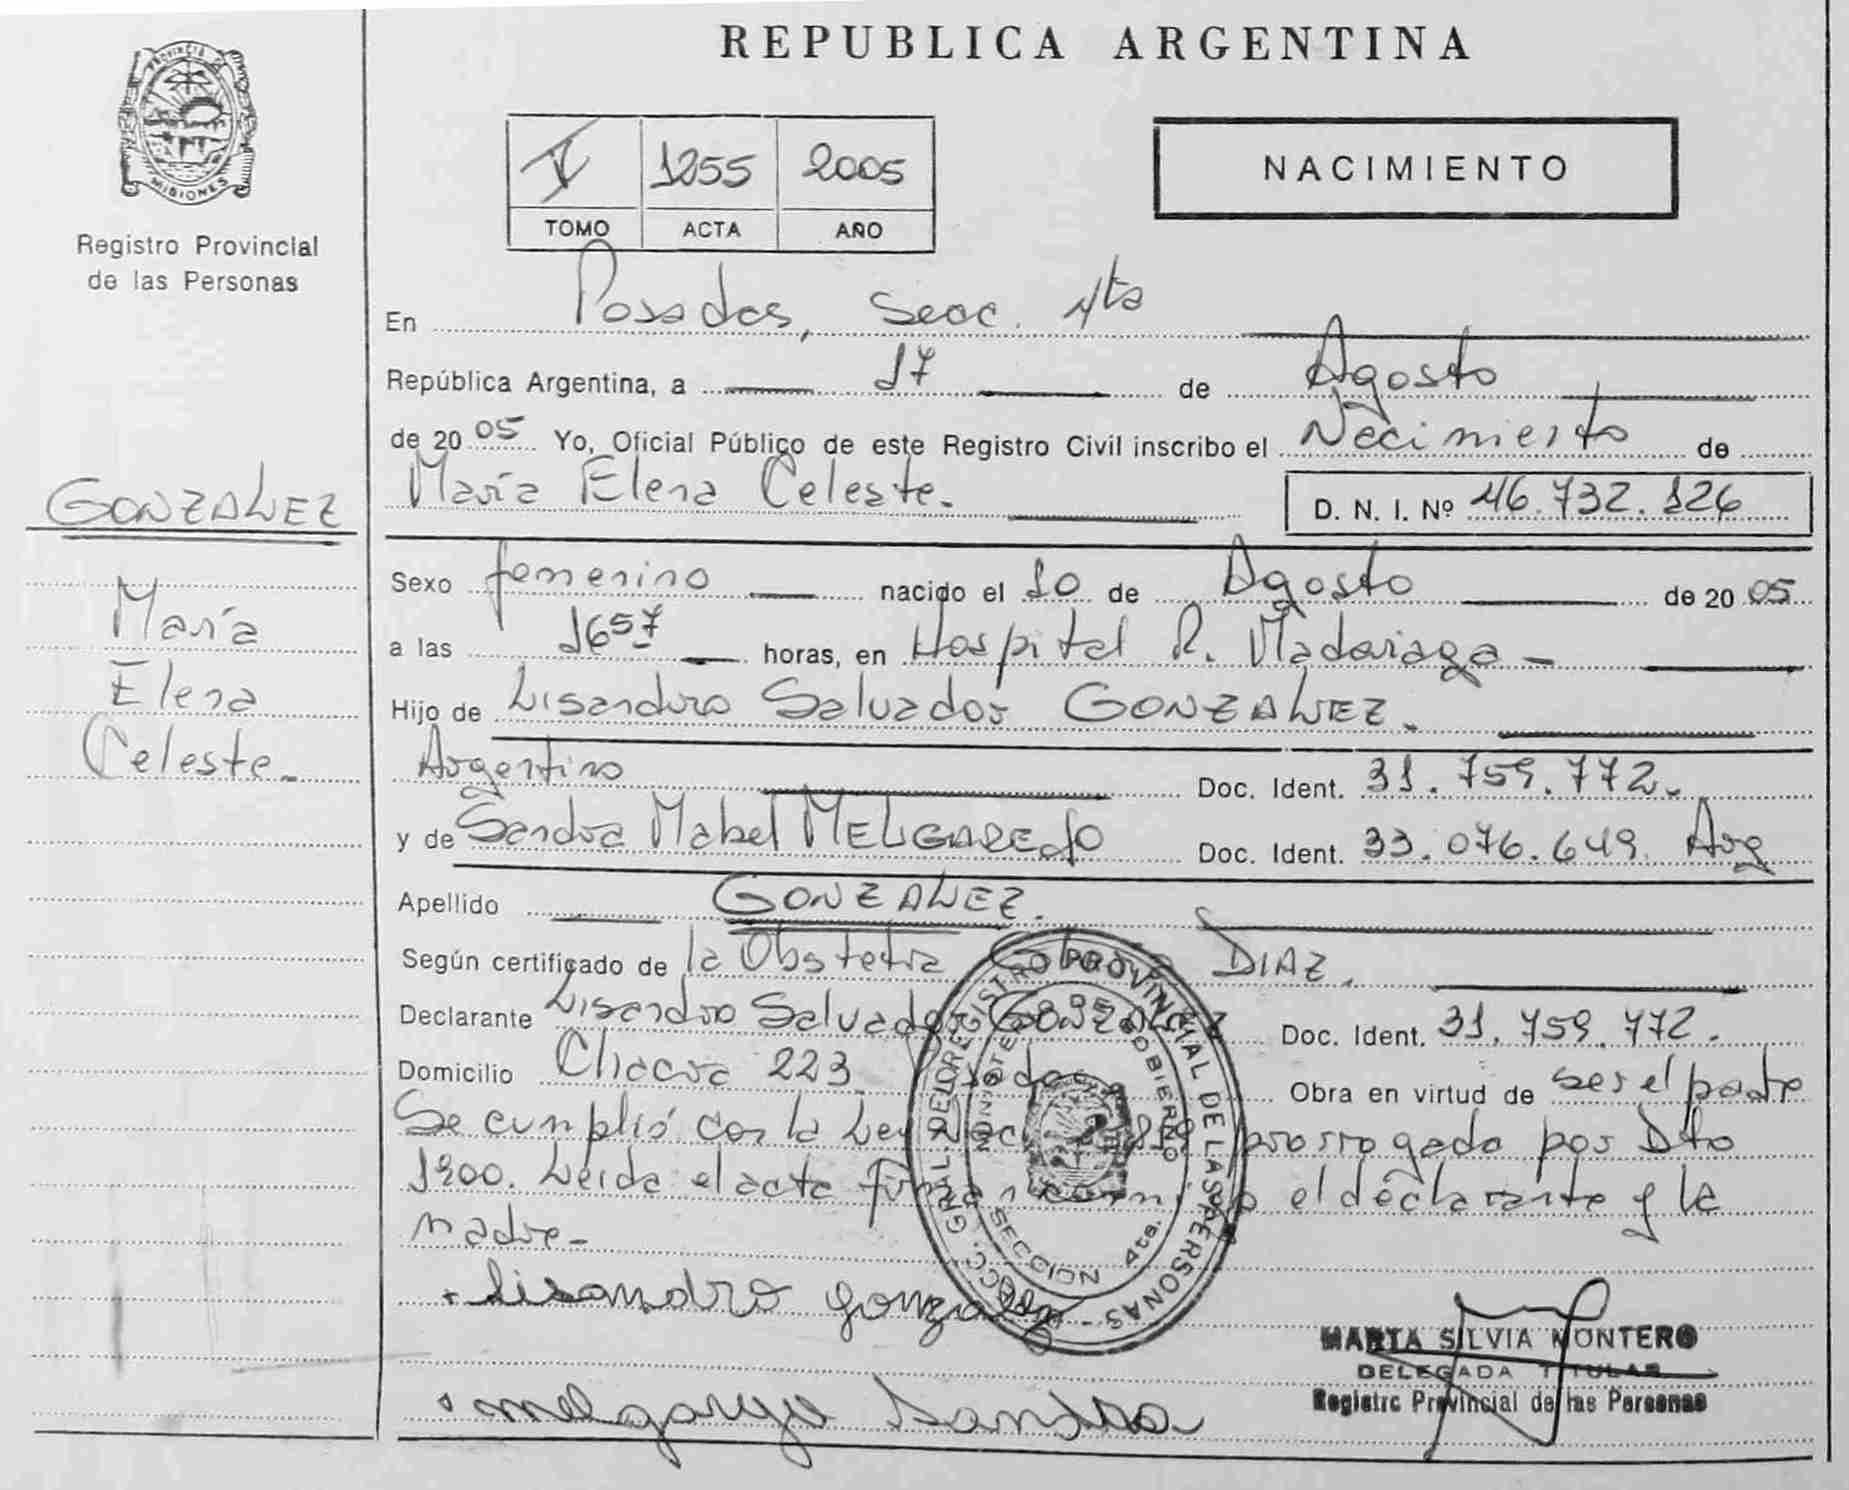 PROVINCIA DE
MISIONES
Registro Provincial
de las Personas
GONZALEZ
María
Elena
Celeste.
REPUBLICA ARGENTINA
V 1255 2005
TOMO ACTA AÑO
NACIMIENTO
En Posadas, Secc. 4ta
República Argentina, a 17 de Agosto
de 2005 Yo, Oficial Público de este Registro Civil inscribo el Nacimiento de
María Elena Celeste. D. N. I. Nº 46.732.126
Sexo femenino nacido el 10 de Agosto de 2005
a las 1657 horas, en Hospital R. Madariaga -
Hijo de Lisandro Salvador GONZALEZ.
Argentino Doc. Ident. 31.759.772.
y de Sandra Mabel MELGAREJO Doc. Ident. 33.076.649. Arg
Apellido GONZALEZ.
Según certificado de la Obstetra DIAZ.
Declarante Lisandro Salvador GONZALEZ Doc. Ident. 31.759.772.
Domicilio Chacra 223 Posadas Obra en virtud de ser el padre
Se cumplió con la Ley prorrogado por Dto
1900. Leída el acta firman conmigo el declarante y la
madre-
Lisandro gonzalez
melgarejo Sandra
REGISTRO PROVINCIAL DE LAS PERSONAS
MINISTERIO DE GOBIERNO
SECCION 4ta.
MARTA SILVIA MONTERO
DELEGADA TITULAR
Registro Provincial de las Personas